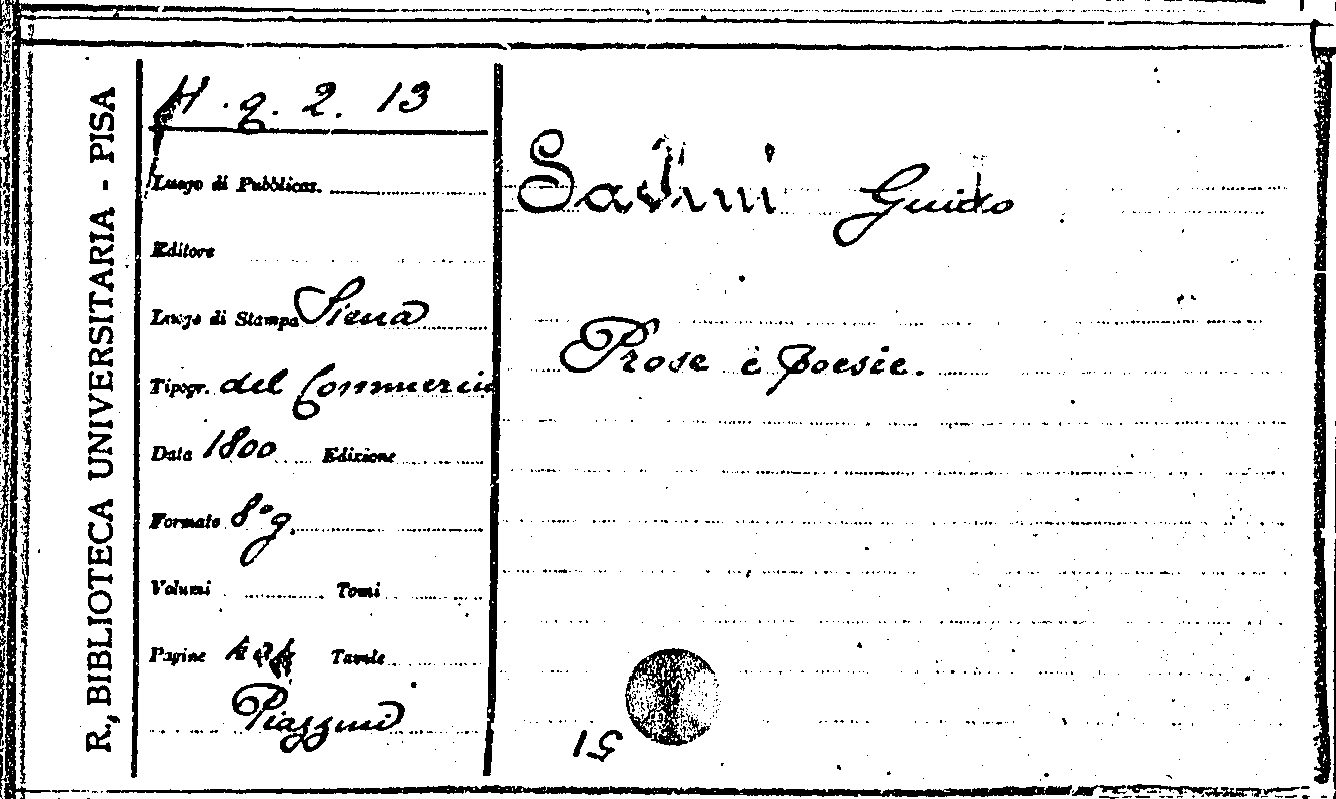 R., BIBLIOTECA UNIVERSITARIA - PISA
H. g. 2. 13
Luogo di Pubblicaz.
Editore
Luogo di Stampa Siena
Tipogr. del Commercio
Data 1800 Edizione
Formato 8° g.
Volumi Tomi
Pagine Tavole
Piazzini
Guido
Prose e poesie.
51